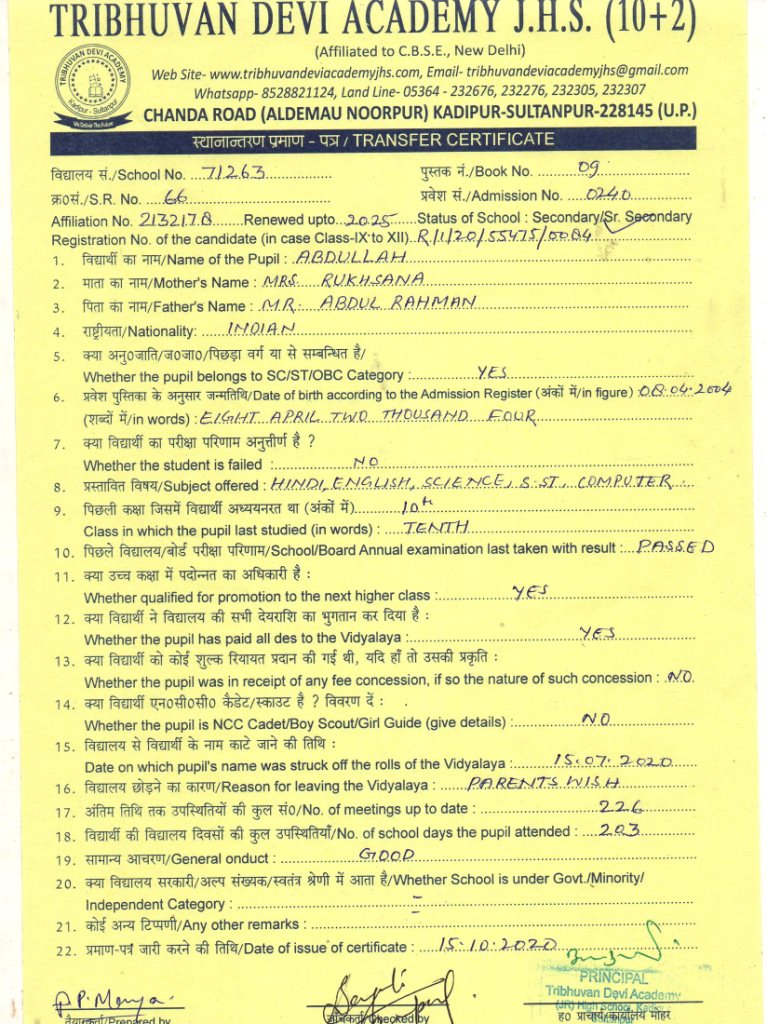 TRIBHUVAN DEVI ACADEMY J.H.S. (10+2)
(Affiliated to C.B.S.E., New Delhi)
Web Site- www.tribhuvandeviacademyjhs.com, Email- tribhuvandeviacademyjhs@gmail.com
Whatsapp- 8528821124, Land Line- 05364 - 232676, 232276, 232305, 232307
CHANDA ROAD (ALDEMAU NOORPUR) KADIPUR-SULTANPUR-228145 (U.P.)
TRIBHUVAN DEVI ACADEMY
Kadipur - Sultanpur
We Deliver The Future
स्थानान्तरण प्रमाण - पत्र / TRANSFER CERTIFICATE
विद्यालय सं./School No. 71263 पुस्तक नं./Book No. 09
क्र0सं./S.R. No. 66 प्रवेश सं./Admission No. 0240
Affiliation No. 2132178 Renewed upto 2025 Status of School : Secondary/Sr. Secondary
Registration No. of the candidate (in case Class-IX to XII) R/1/20/55475/0084
1. विद्यार्थी का नाम/Name of the Pupil : ABDULLAH
2. माता का नाम/Mother's Name : MRS. RUKHSANA
3. पिता का नाम/Father's Name : MR. ABDUL RAHMAN
4. राष्ट्रीयता/Nationality: INDIAN
5. क्या अनु0जाति/ज0जा0/पिछड़ा वर्ग या से सम्बन्धित है/
Whether the pupil belongs to SC/ST/OBC Category : YES
6. प्रवेश पुस्तिका के अनुसार जन्मतिथि/Date of birth according to the Admission Register (अंकों में/in figure) 08.04.2004
(शब्दों में/in words) : EIGHT APRIL TWO THOUSAND FOUR
7. क्या विद्यार्थी का परीक्षा परिणाम अनुत्तीर्ण है ?
Whether the student is failed : NO
8. प्रस्तावित विषय/Subject offered : HINDI, ENGLISH, SCIENCE, S.ST, COMPUTER
9. पिछली कक्षा जिसमें विद्यार्थी अध्ययनरत था (अंकों में) 10th
Class in which the pupil last studied (in words) : TENTH
10. पिछले विद्यालय/बोर्ड परीक्षा परिणाम/School/Board Annual examination last taken with result : PASSED
11. क्या उच्च कक्षा में पदोन्नत का अधिकारी है :
Whether qualified for promotion to the next higher class : YES
12. क्या विद्यार्थी ने विद्यालय की सभी देयराशि का भुगतान कर दिया है :
Whether the pupil has paid all des to the Vidyalaya : YES
13. क्या विद्यार्थी को कोई शुल्क रियायत प्रदान की गई थी, यदि हाँ तो उसकी प्रकृति :
Whether the pupil was in receipt of any fee concession, if so the nature of such concession : NO.
14. क्या विद्यार्थी एन0सी0सी0 कैडेट/स्काउट है ? विवरण दें :
Whether the pupil is NCC Cadet/Boy Scout/Girl Guide (give details) : NO
15. विद्यालय से विद्यार्थी के नाम काटे जाने की तिथि :
Date on which pupil's name was struck off the rolls of the Vidyalaya : 15.07.2020
16. विद्यालय छोड़ने का कारण/Reason for leaving the Vidyalaya : PARENTS WISH
17. अंतिम तिथि तक उपस्थितियों की कुल सं0/No. of meetings up to date : 226
18. विद्यार्थी की विद्यालय दिवसों की कुल उपस्थितियाँ/No. of school days the pupil attended : 203
19. सामान्य आचरण/General onduct : GOOD
20. क्या विद्यालय सरकारी/अल्प संख्यक/स्वतंत्र श्रेणी में आता है/Whether School is under Govt./Minority/
Independent Category : –
21. कोई अन्य टिप्पणी/Any other remarks :
22. प्रमाण-पत्र जारी करने की तिथि/Date of issue of certificate : 15.10.2020
PRINCIPAL
Tribhuvan Devi Academy
(JR) High School, Kadipur
तैयारकर्ता/Prepared by
जाँचकर्ता/Checked by
ह0 प्राचार्य/कार्यालय मोहर